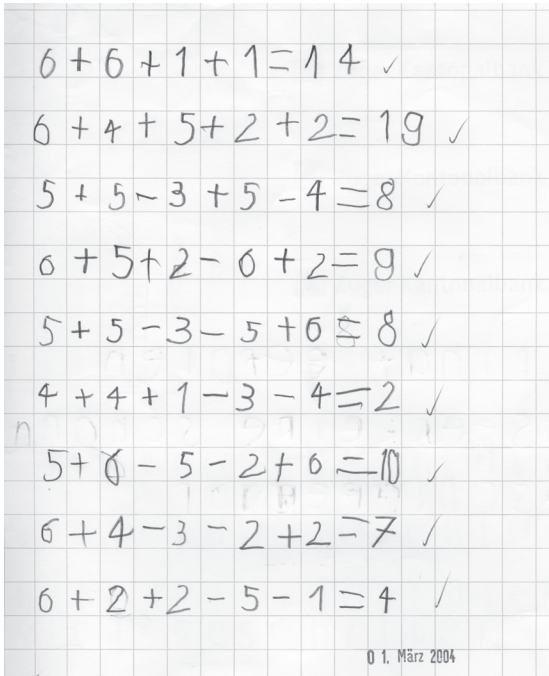 6 + 6 + 1 + 1 = 14 ✓
6 + 4 + 5 + 2 + 2 = 19 ✓
5 + 5 - 3 + 5 - 4 = 8 ✓
6 + 5 + 2 - 6 + 2 = 9 ✓
5 + 5 - 3 - 5 + 6 = 8 ✓
4 + 4 + 1 - 3 - 4 = 2 ✓
5 + 6 - 5 - 2 + 6 = 10 ✓
6 + 4 - 3 - 2 + 2 = 7 ✓
6 + 2 + 2 - 5 - 1 = 4 ✓
0 1. März 2004